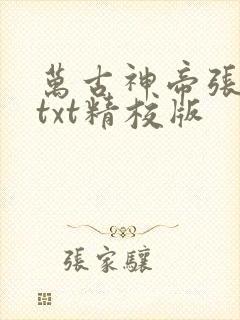 萬古神帝張
txt精校版
張家驤